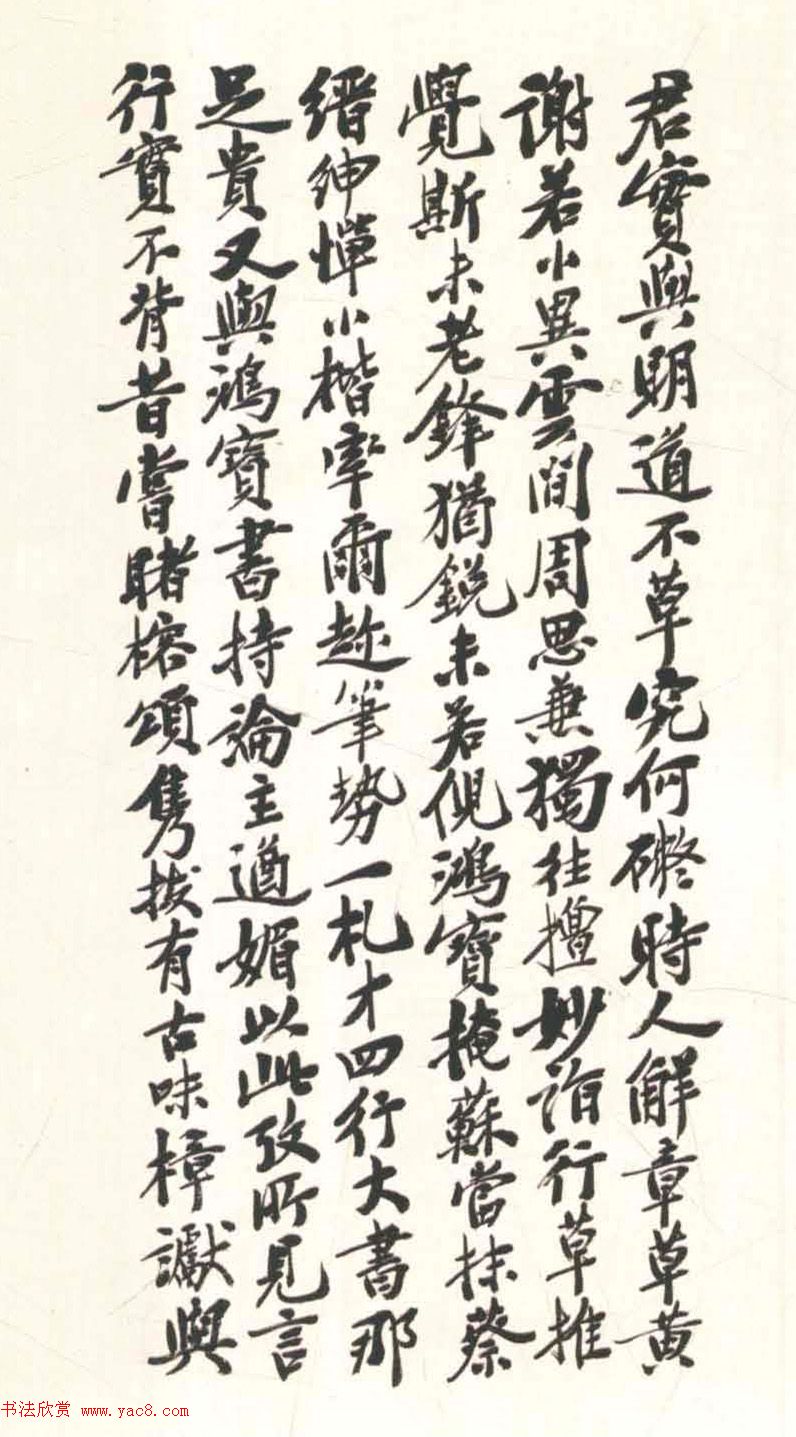 君實與明道不草究何礙時人解章草黃
謝若小異雲間周思兼獨往擅妙詣行草推
覺斯未老鋒猶銳未若倪鴻寶掩蘇當抹蔡
縉紳憚小楷率爾趁筆勢一札才四行大書那
足貴又與鴻寶書持論主遒媚以此攷所見言
行實不背昔嘗睹榕頌雋拔有古味樟讞與
书法欣赏 www.yac8.com